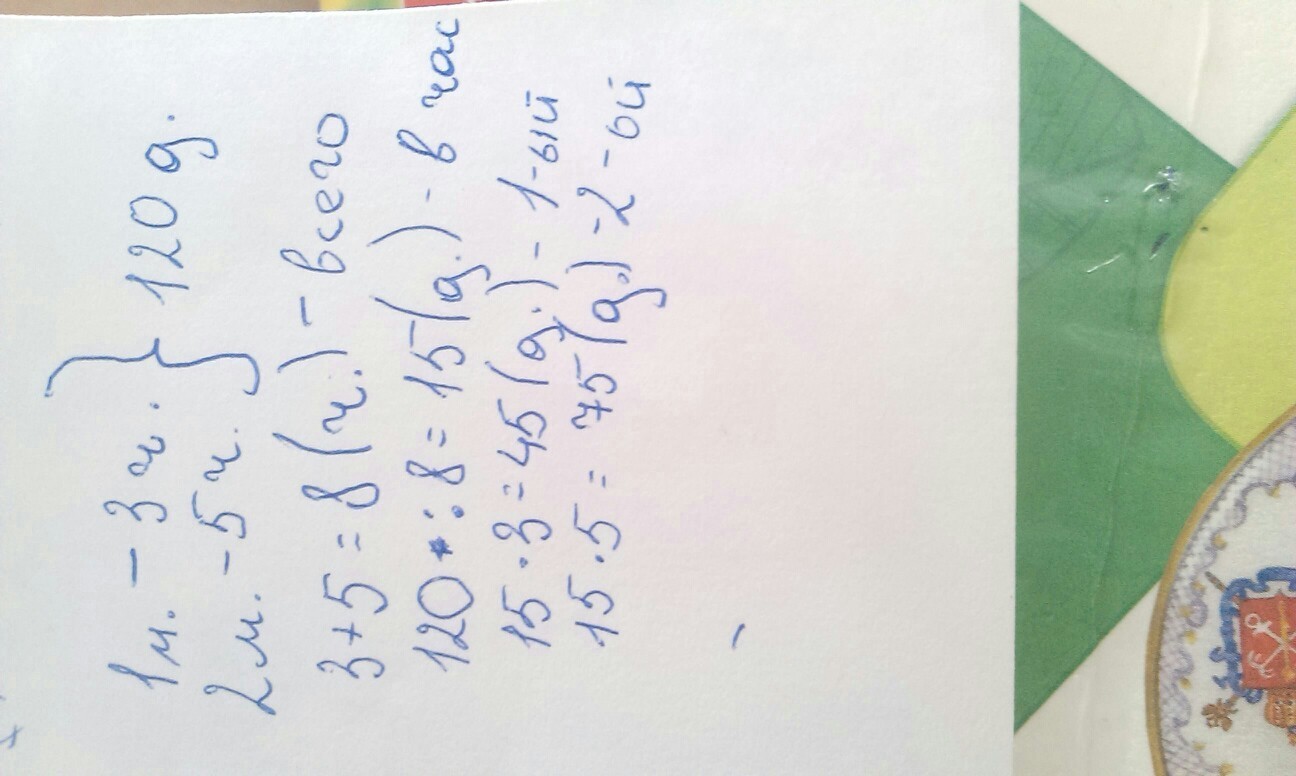 1 м. – 3 ч. } 120 д.
2 м. – 5 ч.
3+5=8(ч.) – всего
120 : 8 = 15(д.) - в час
15 · 3 = 45(д.) - 1-ый
15 · 5 = 75(д.) - 2-ой